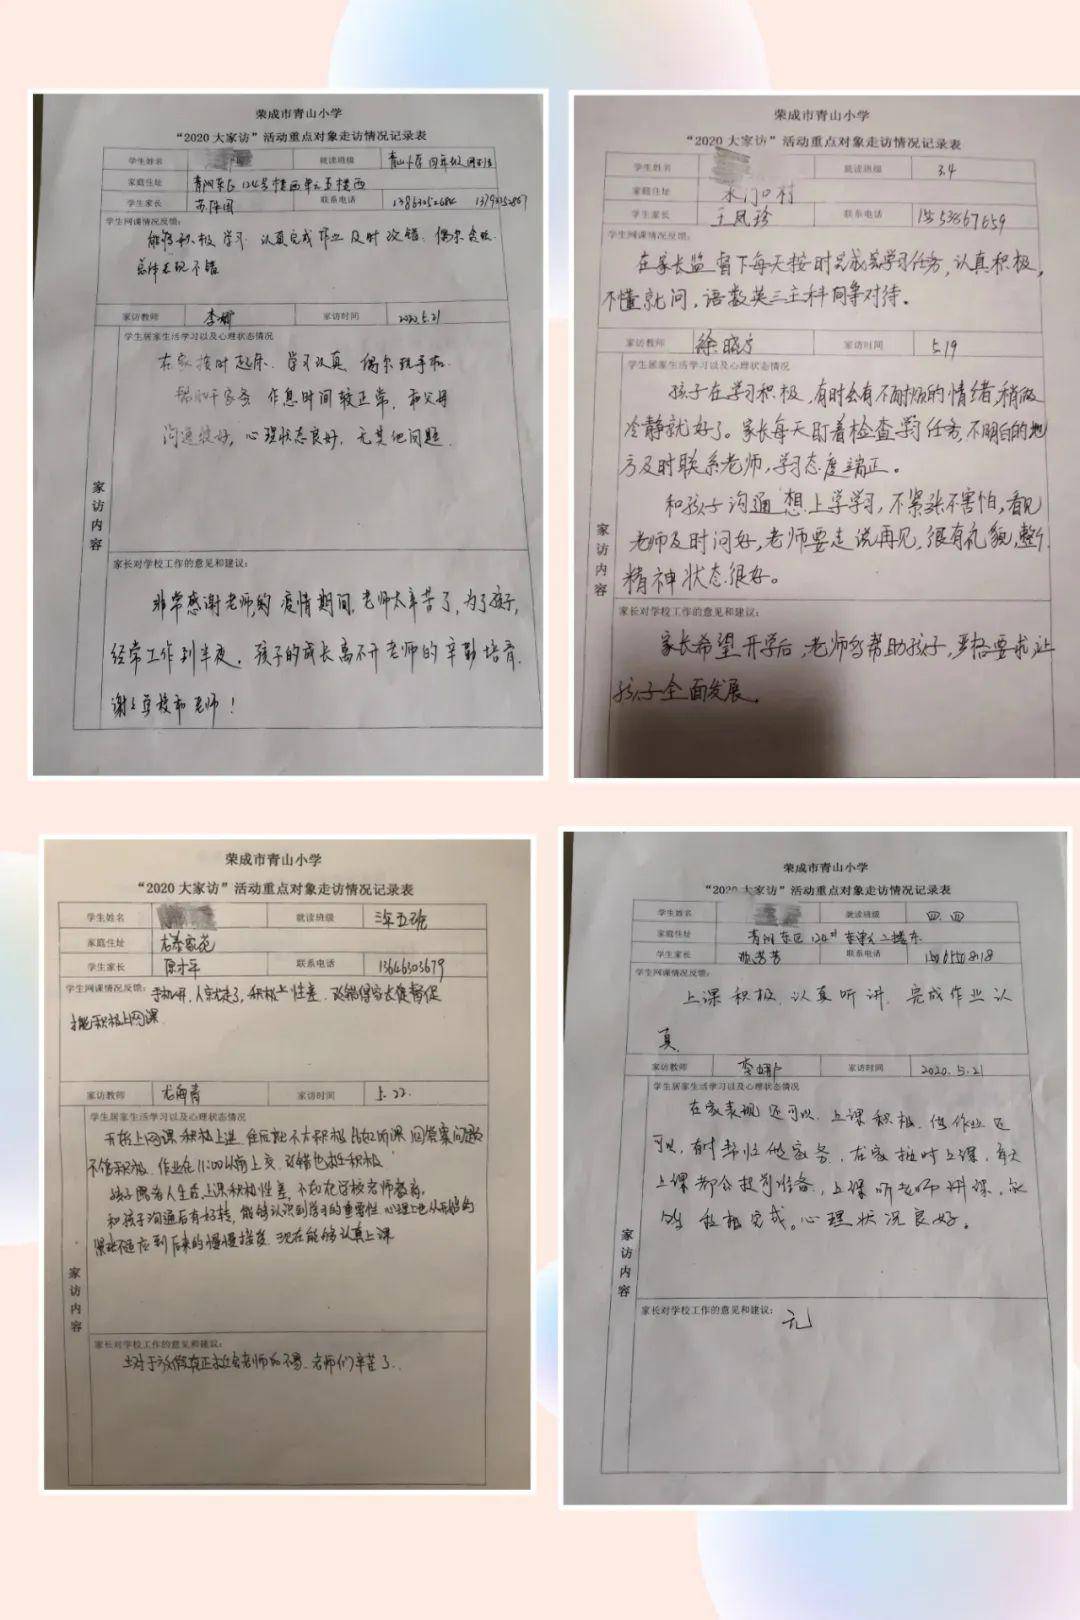 荣成市青山小学
“2020大家访”活动重点对象走访情况记录表
学生姓名 就读班级 青山小学四年级四班
家庭住址 青湖东区124号楼西单元五楼西
学生家长 联系电话 13863052684
学生网课情况反馈:
能够积极学习 认真完成作业 及时改错,偶尔
总体表现不错
家访教师 李娜 家访时间 2020.5.21
学生居家生活学习以及心理状态情况
在家按时起床、学习认真 偶尔玩手机
帮助干家务 作息时间较正常,和父母
沟通较好,心理状态良好,无其他问题
家访内容
家长对学校工作的意见和建议:
非常感谢老师的 疫情期间,老师太辛苦了,为了孩子,
经常工作到半夜。孩子的成长离不开老师的辛勤培育.
谢谢学校和老师!
荣成市青山小学
“2020大家访”活动重点对象走访情况记录表
学生姓名 就读班级 3.4
家庭住址 木门口村
学生家长 王凤珍 联系电话
学生网课情况反馈:
在家长监督下每天按时完成学习任务,认真积极,
不懂就问,语数英三主科同等对待。
家访教师 徐晓方 家访时间 5.19
学生居家生活学习以及心理状态情况
孩子在学习积极,有时会有不耐烦的情绪,稍微
冷静就好了。家长每天盯着检查学习任务,不明白的地
方及时联系老师,学习态度端正。
和孩子沟通想上学学习,不紧张不害怕,看见
老师及时问好,老师要走说再见,很有礼貌,整个
精神状态很好。
家访内容
家长对学校工作的意见和建议:
家长希望开学后,老师多帮助孩子,严格要求让
孩子全面发展。
荣成市青山小学
“2020大家访”活动重点对象走访情况记录表
学生姓名 就读班级 三年五班
家庭住址
学生家长 联系电话 13646303679
学生网课情况反馈: 手机一开,人就走了,积极性差,改错得家长催督促
才能积极上网课
家访教师 家访时间 5.22.
学生居家生活学习以及心理状态情况
开始上网课积极上进,往后就不太积极 比如听课 回答案问题
不够积极,作业在11:00以前上交,改错也挺积极
孩子 上课积极性差,不如在学校老师教育,
和孩子沟通后有好转,能够认识到学习的重要性,心理上也从开始的
紧张不适应到后来的慢慢接受,现在能够认真上课
家访内容
家长对学校工作的意见和建议:
老师们辛苦了.
荣成市青山小学
“2020大家访”活动重点对象走访情况记录表
学生姓名 就读班级 四.四
家庭住址 青湖东区124# 东单元二楼东
学生家长 联系电话
学生网课情况反馈:
上课积极,认真听讲,完成作业认
真
家访教师 李娜 家访时间 2020.5.21
学生居家生活学习以及心理状态情况
在家表现还可以,上课积极,做作业还
可以,有时帮忙做家务,在家按时上课,每天
上课都会提前准备,上课听老师讲课,
积极完成。心理状况良好。
家访内容
家长对学校工作的意见和建议: 无